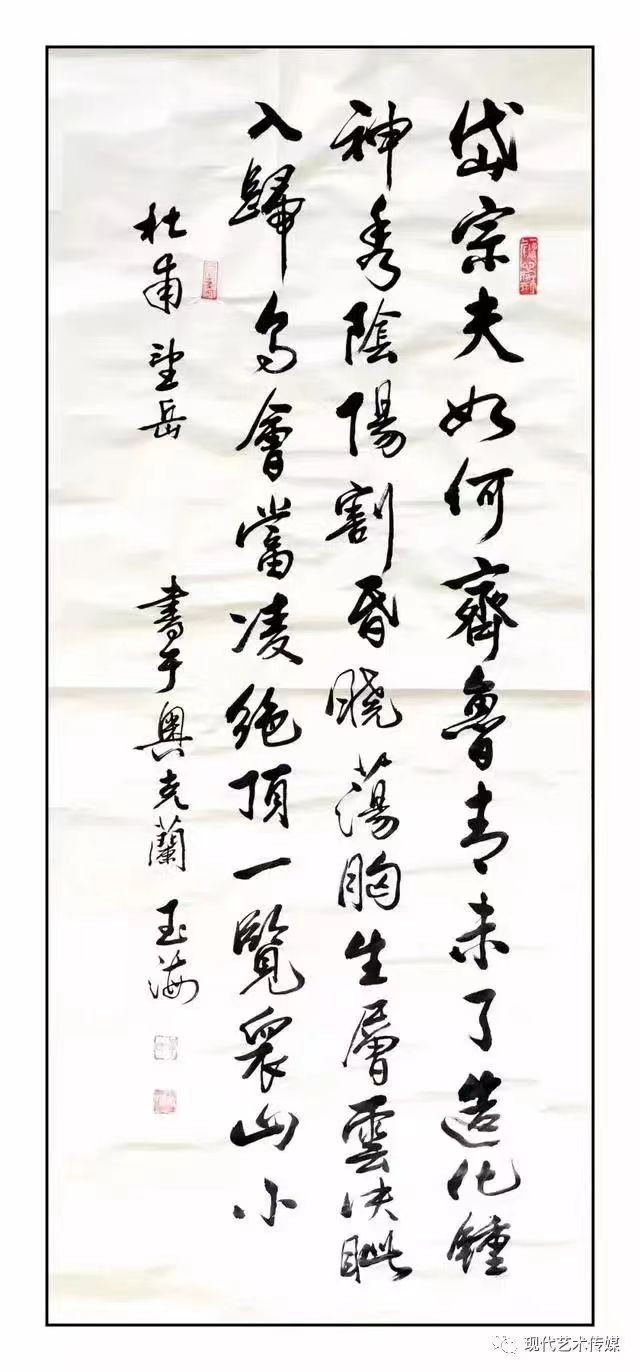 岱宗夫如何齊魯青未了造化鍾
神秀陰陽割昏曉蕩胸生層雲决眦
入歸鸟會當凌絶頂一覽衆山小
杜甫望岳 書于奥克蘭 玉海
现代艺术传媒